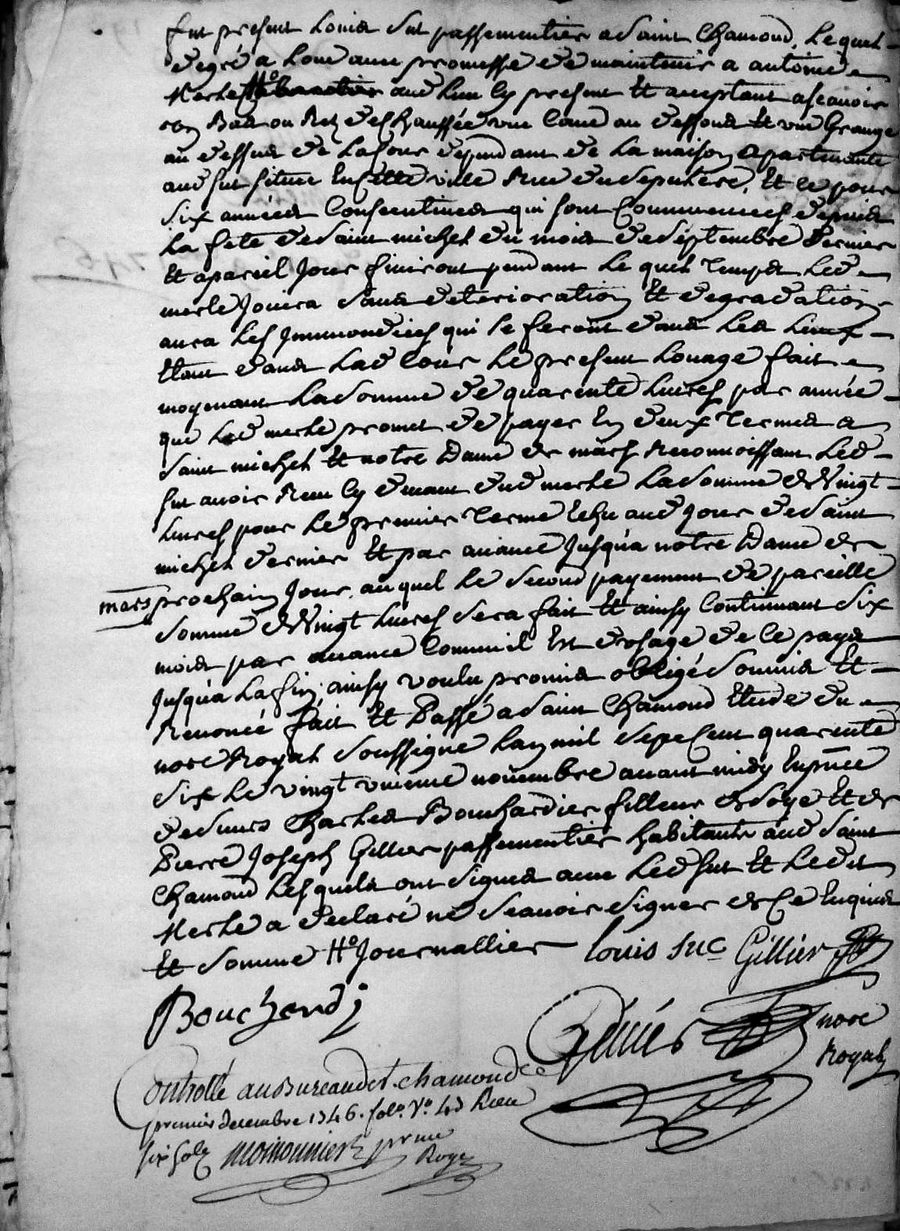 fut present Louis Sut passementier a Saint Chamond, Lequel
de gré a Loué avec promesse de maintenir a antoine
Merle aud Lieu Cy present Et acceptant ascavoir
un Bas ou Rez de Chaussée une Cave au dessous Et une Grange
au dessus de La Cour dependant de La maison apartenante
aud Sut située En cette ville Rue du Sepulcre, Et ce pour
Six années Consecutives qui sont Commencees depuis
La fete de Saint michel du mois de Septembre dernier
Et a pareil Jour finiront pendant Le quel Temps Led
merle Jouira Sans deterioration Et degradation
aura Les Immondices qui Se feront dans Les Lieux
Etant dans Lad Cour Le present Louage fait
moyenant La Somme de quarente Livres par année
que Led merle promet de payer En deux Termes a
Saint michel Et notre Dame de mars Reconnoissant Led
Sut avoir Reçu Cy devant dud merle La Somme de Vingt
Livres pour Le premier Terme Echu aud Jour de Saint
michel dernier Et par avance Jusqu'a notre Dame de
mars prochain Jour auquel Le Second payement de pareille
Somme de Vingt Livres Sera fait Et ainsy Continuant Six
mois par avance Comm'il Est d'usage de Ce pays
Jusqu'a La fin, ainsy voulu promis obligé Soumis Et
Renoncé fait Et Passé a Saint Chamond Etude du
nore Royal Soussigné L'an mil Sept Cent quarente
Six Le vingt novembre avant midy En pnce
de Charles Bouchardier filleur de Soye Et de
Pierre Joseph Gillier passementier habitants aud Saint
Chamond Lesquels ont Signes avec Led Sut Et Ledit
Merle a declaré ne Scavoir Signer de Ce Enquis
Et Sommé Journallier Louis Sut Gillier
Bouchardi
nore
Royal
Controllé au Bureau de St. chamond ce
premier decembre 1746. folo. Vo. 43 Recu
Six Sols